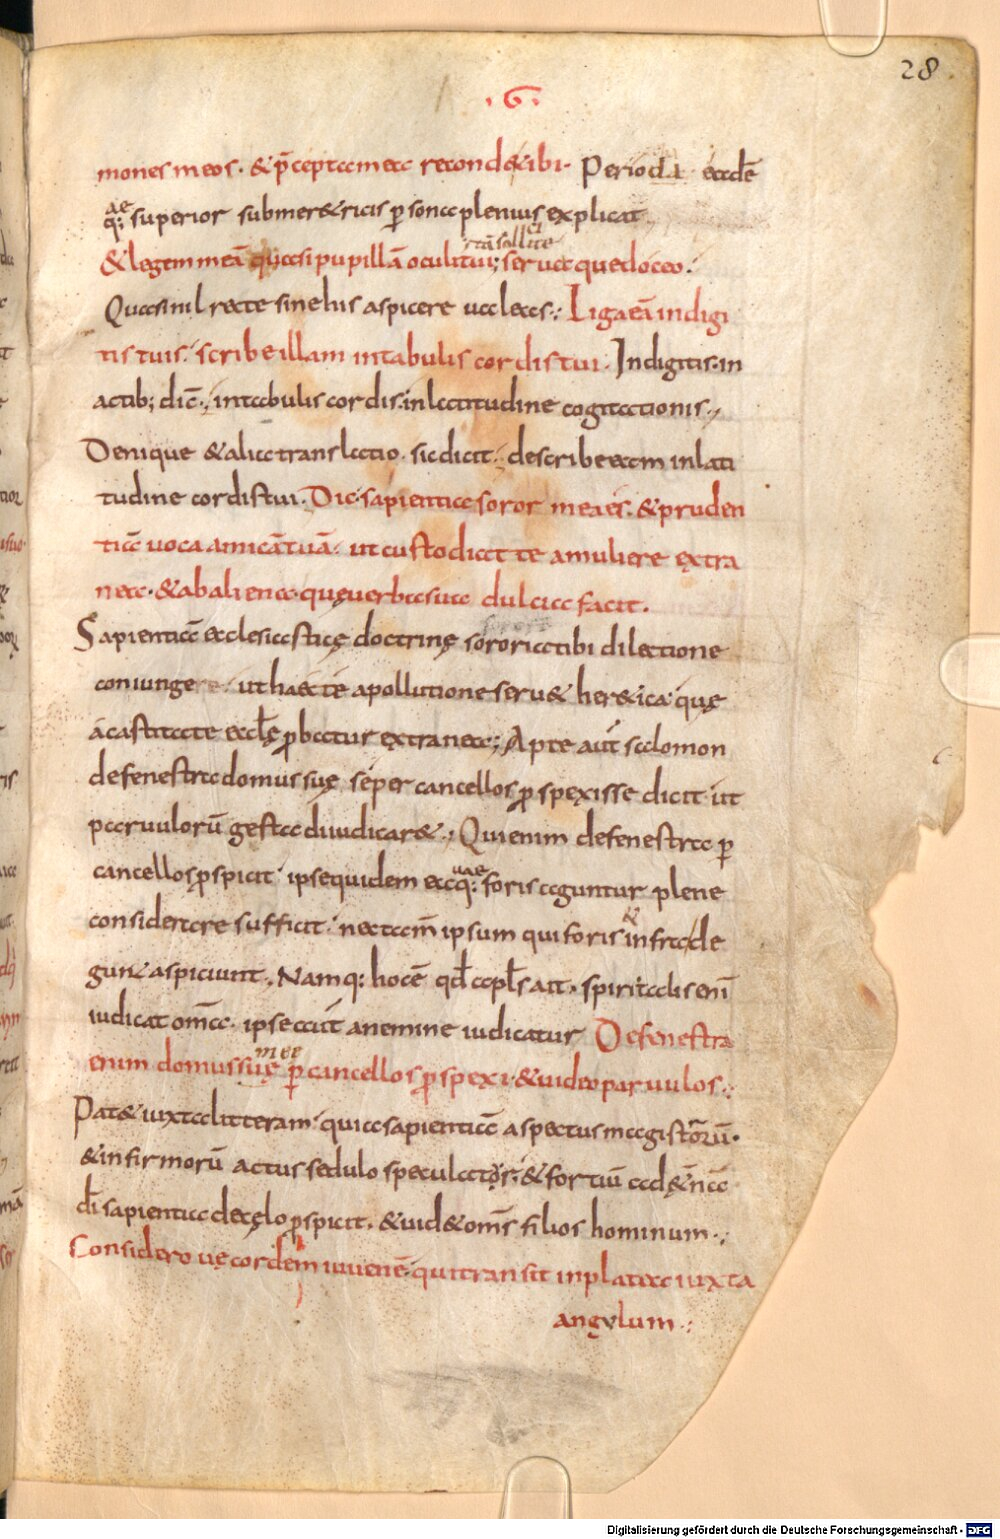 28
·G·
mones meos· & p̄cepta mea recond& ibi· Perioda eadē
q: ae superior subme&ricis ꝑsona plenius explicat
stā sollicite
& legem meā quasi pupillā oculi tui; serua que doceo·
Quasi nil recte sine his aspicere ualeas·: Liga eā in digi
tis tuis· scribe illam in tabulis cordis tui· In digitis· in
actib; dic̄·, in tabulis cordis· in latitudine cogitationis·,
Denique & alia translatio· sic dicit· describe eam in lati
tudine cordis tui· Dic· sapientiae soror mea es· & pruden
tiā uoca amicā tuā· ut custodiat te a muliere extra
nea· & ab aliena· quę uerba sua dulcia facit·
Sapientiā ecclesiasticę doctrinę sororia tibi dilectione
coniunge· ut haec te a pollutione seru& her&ica· quę
a castitate eccłę ꝓbatur extranea; Apte aūt salomon
de fenestra domus suę se per cancellos ꝓspexisse dicit ut
paruulorū gesta diiudicar&·, Qui enim de fenestra ꝑ
uae
cancellos ꝓspicit· ipse quidem ea q: foris aguntur plene
&
considerare sufficit· nec tam̄ ipsum qui foris in strade
gun& aspiciunt· Namq: hoc ē qđ apłs ait· spiritalis eni
iudicat omā· ipse aūt a nemine iudicatur De fenestra
mee
enim domus suę ꝑ cancellos ꝓspexi· & uideo paruulos·:
Pat& iuxta litteram· quia sapientiā aspectus magistrorū·
& infirmorū actus sedulo speculatos· & fortiū ad &nā
dī sapientia de cęlo ꝓspicit· & uid& om̄s filios hominum·:
Considero uecordem iuuenē· qui transit in platea iuxta
angulum·:
Digitalisierung gefördert durch die Deutsche Forschungsgemeinschaft - DFG